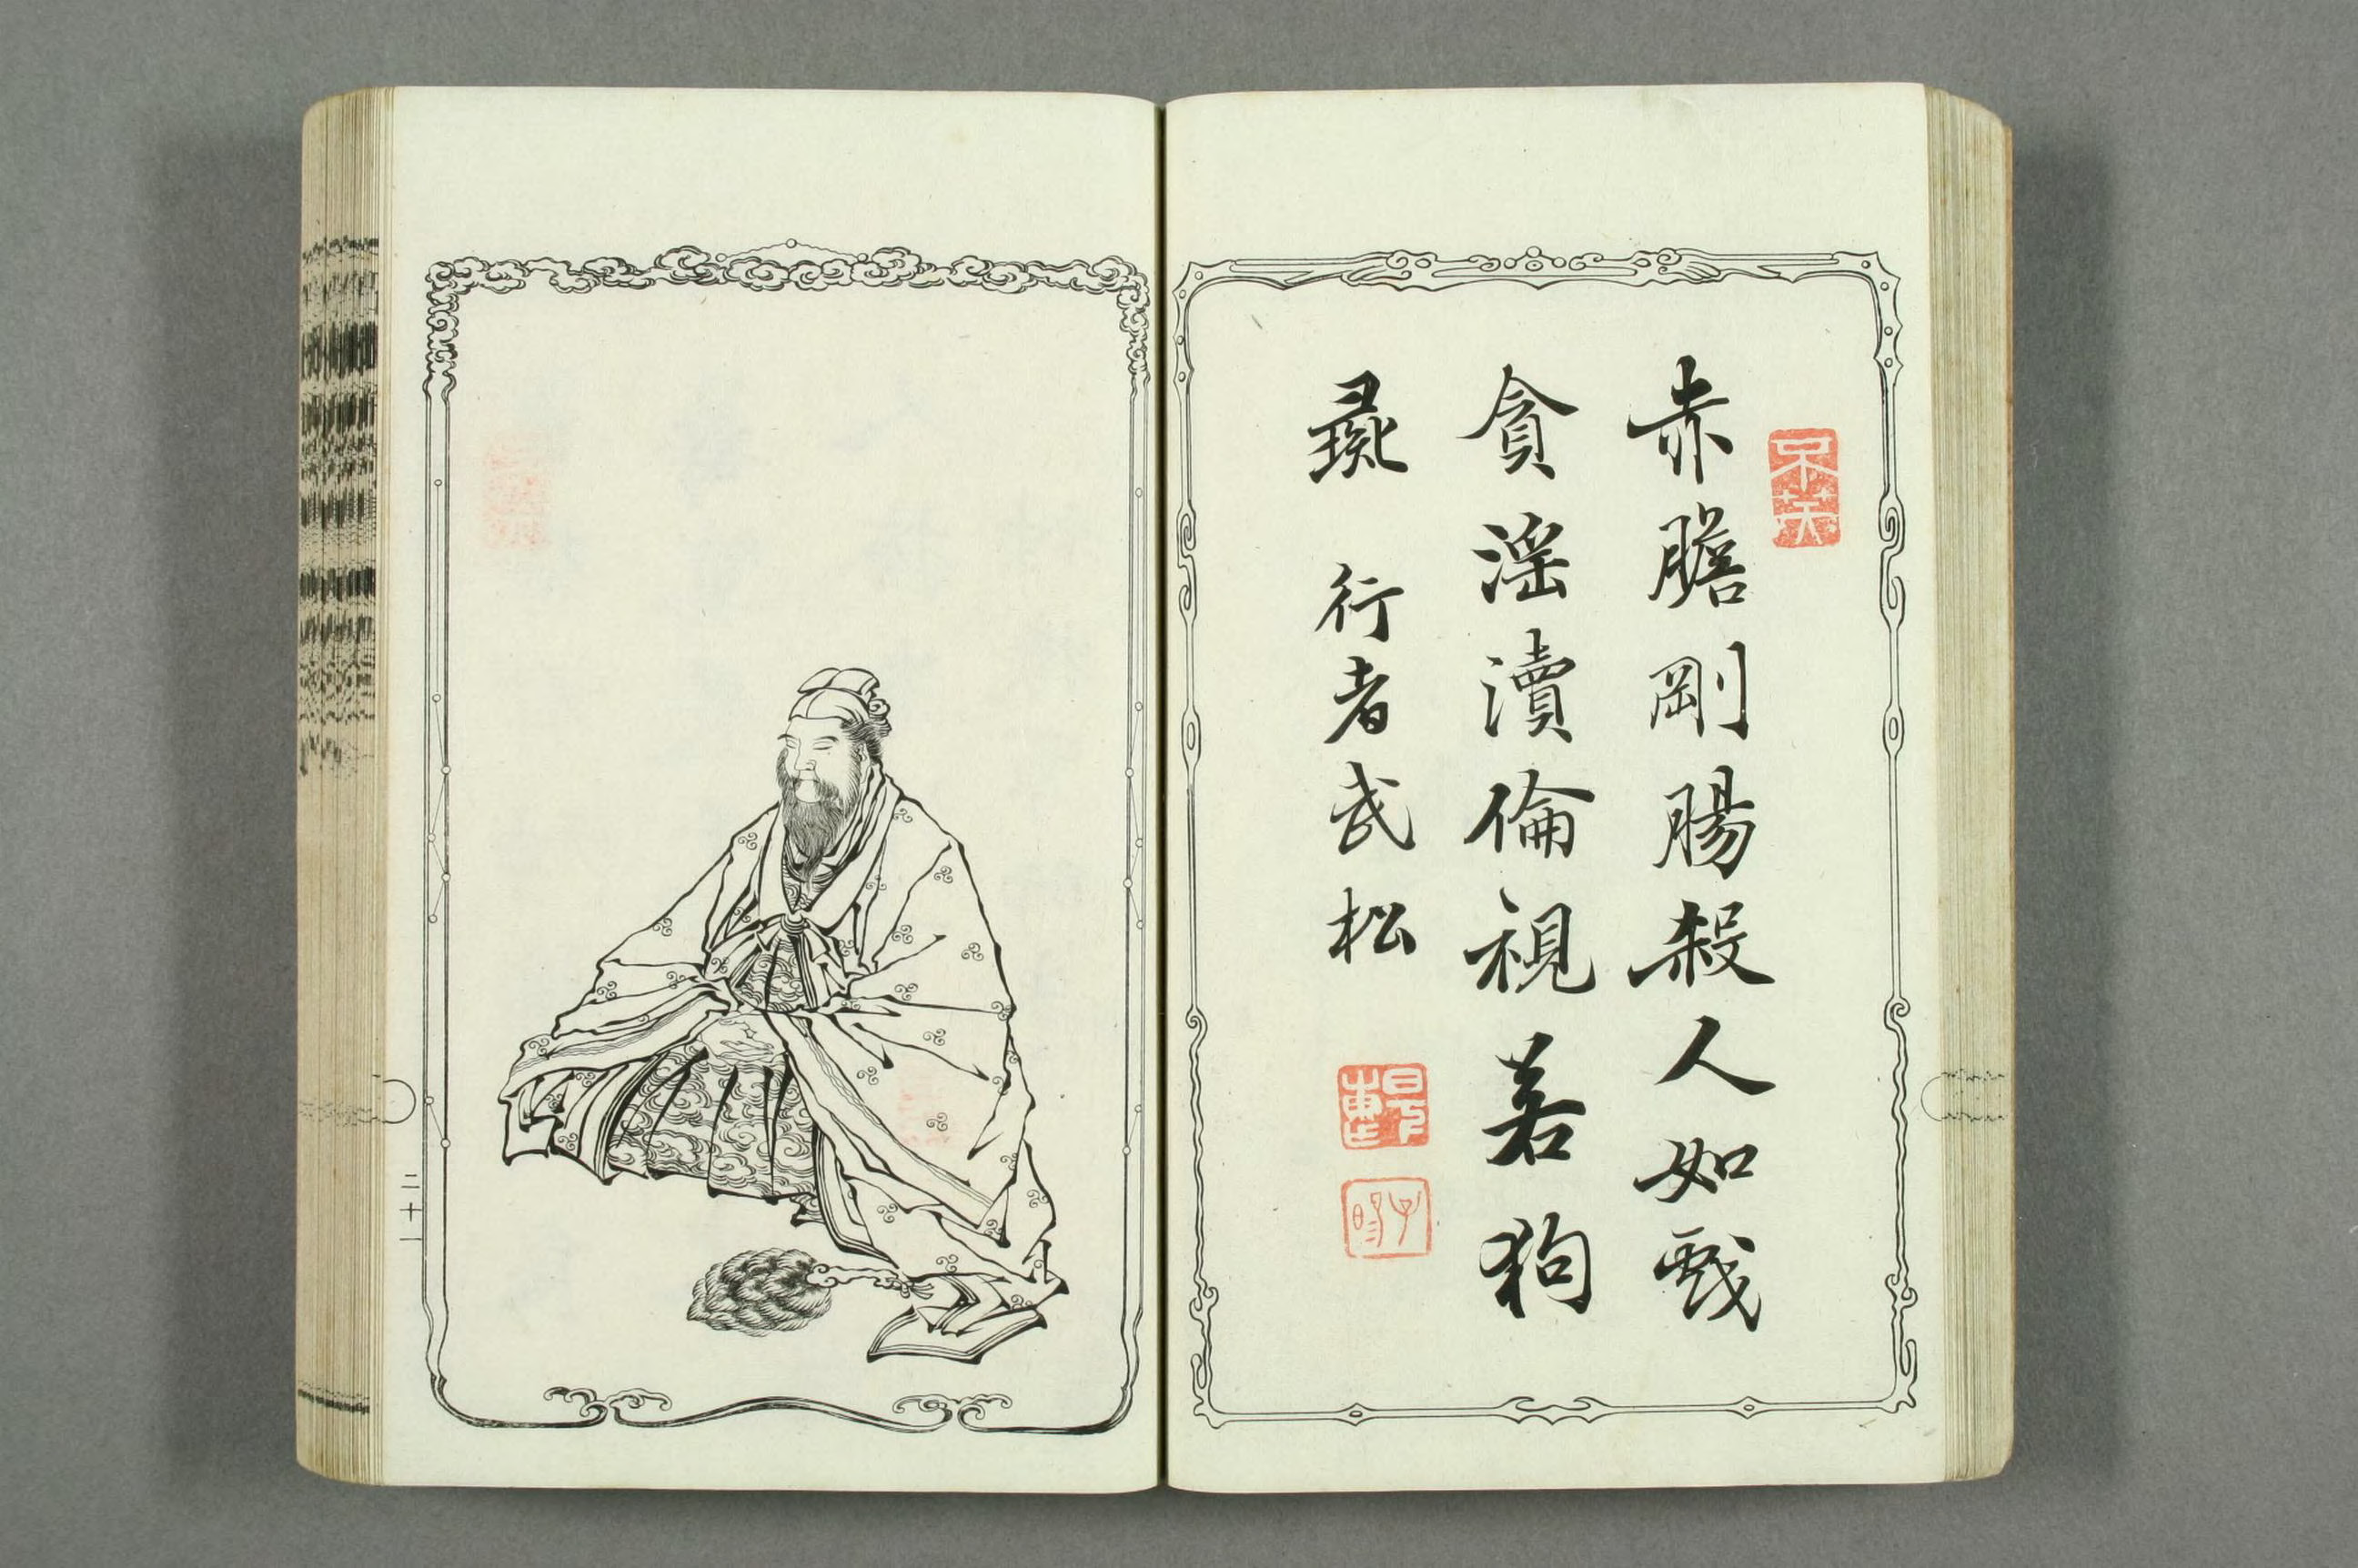 赤膽剛腸殺人如戲
貪淫瀆倫視若狗
彘 行者武松
二十一